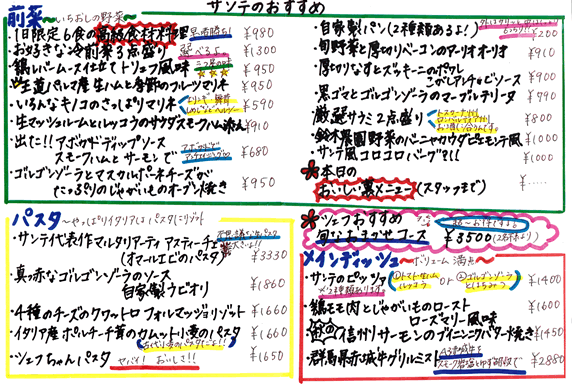 サンテのおすすめ
前菜 〜いちおしの野菜〜
・1日限定6食の高級食材料理 早い者勝ち! ¥980
・お好きな冷前菜3点盛り 選べるよ ¥1300
・鶏レバームース仕立てトリュフ風味 ☆☆☆ ¥950
・生ハムと季節のフルーツマリネ ¥950
・いろんなキノコのさっぱりマリネ ¥590
・生マッシュルームとルッコラのサラダスモークハム添え ¥910
・出た!!アボカドディップソース
スモークハムとサーモンで ¥680
・ゴルゴンゾーラとマスカルポーネチーズが
たっぷりのじゃがいものオーブン焼き ¥950
・自家製パン(2種類あるよ!) ¥200
・旬野菜と厚切りベーコンのアーリオオーリオ ¥910
・厚切りなすとズッキーニのポワレ
こがしアンチョビソース ¥900
・黒ゴマとゴルゴンゾーラのテリーヌ ¥790
・厳選サラミ2点盛り ¥800
・鈴木農園野菜のバーニャカウダピエモンテ風 ¥1000
・サンテ風コロコロバーグ?!! ¥1000
本日の
おいしい裏メニュー(スタッフまで) ¥……
パスタ 〜やっぱりイタリアはパスタにリゾット
・サンテ代表作マルタリアーティ アスティーチェ
(オマールエビのパスタ) ¥3330
・真っ赤なゴルゴンゾーラのソース
自家製ラビオリ ¥1860
・4種のチーズのクワトロフォルマッジョリゾット ¥1660
・イタリア産ポルチーニ茸のカムット小麦のパスタ ¥1660
・シェフちゃんパスタ ヤバイ! おいし!! ¥1650
シェフおすすめ
旬なおまかせコース ¥3500(2名様より)
メインディッシュ 〜ボリューム満点〜
・サンテのピッツァ or ¥1400
2種類あります。
・鶏モモ肉とじゃがいものロースト
ローズマリー風味 ¥1600
・信州サーモンのブイニングバター焼き ¥1450
・群馬県赤城牛グリルミスト ¥2880